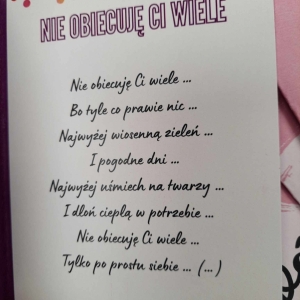 NIE OBIECUJĘ CI WIELE
Nie obiecuję Ci wiele ...
Bo tyle co prawie nic ...
Najwyżej wiosenną zieleń ...
I pogodne dni ...
Najwyżej uśmiech na twarzy ...
I dłoń ciepłą w potrzebie ...
Nie obiecuję Ci wiele ...
Tylko po prostu siebie ... (...)